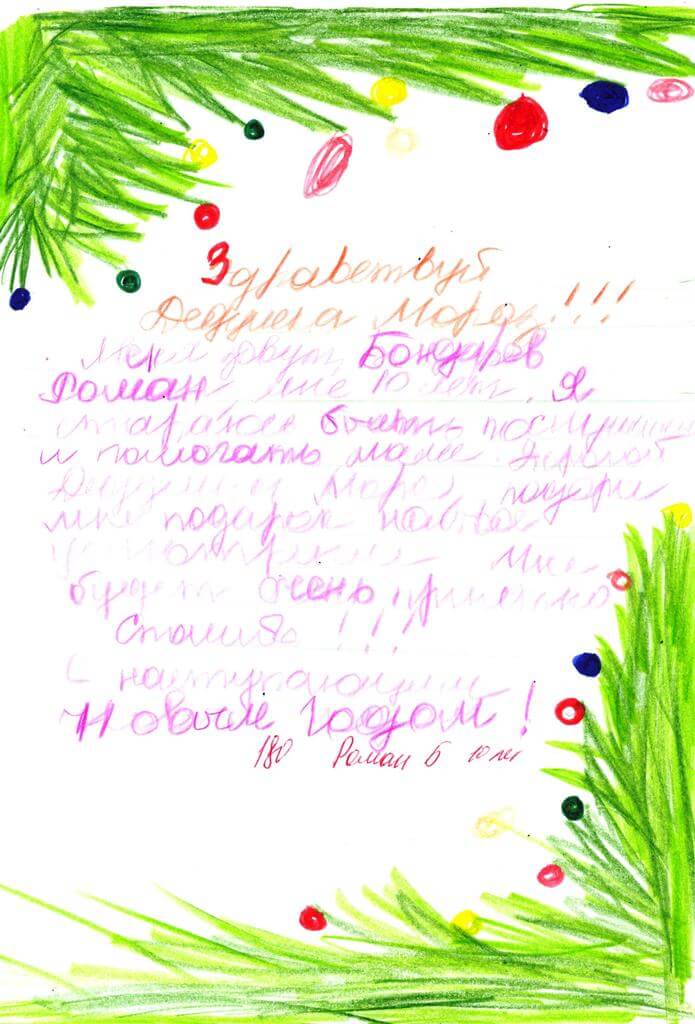 Здравствуй
Дедушка Мороз!!!
Меня зовут Бондарев
Роман мне 10 лет. Я
стараюсь быть послушным
и помогать маме. Дорогой
Дедушка Мороз, подари
мне подарок набор
Мне
будет очень приятно
Спасибо!!!
С наступающим
Новым годом!
180 Роман Б 10 лет